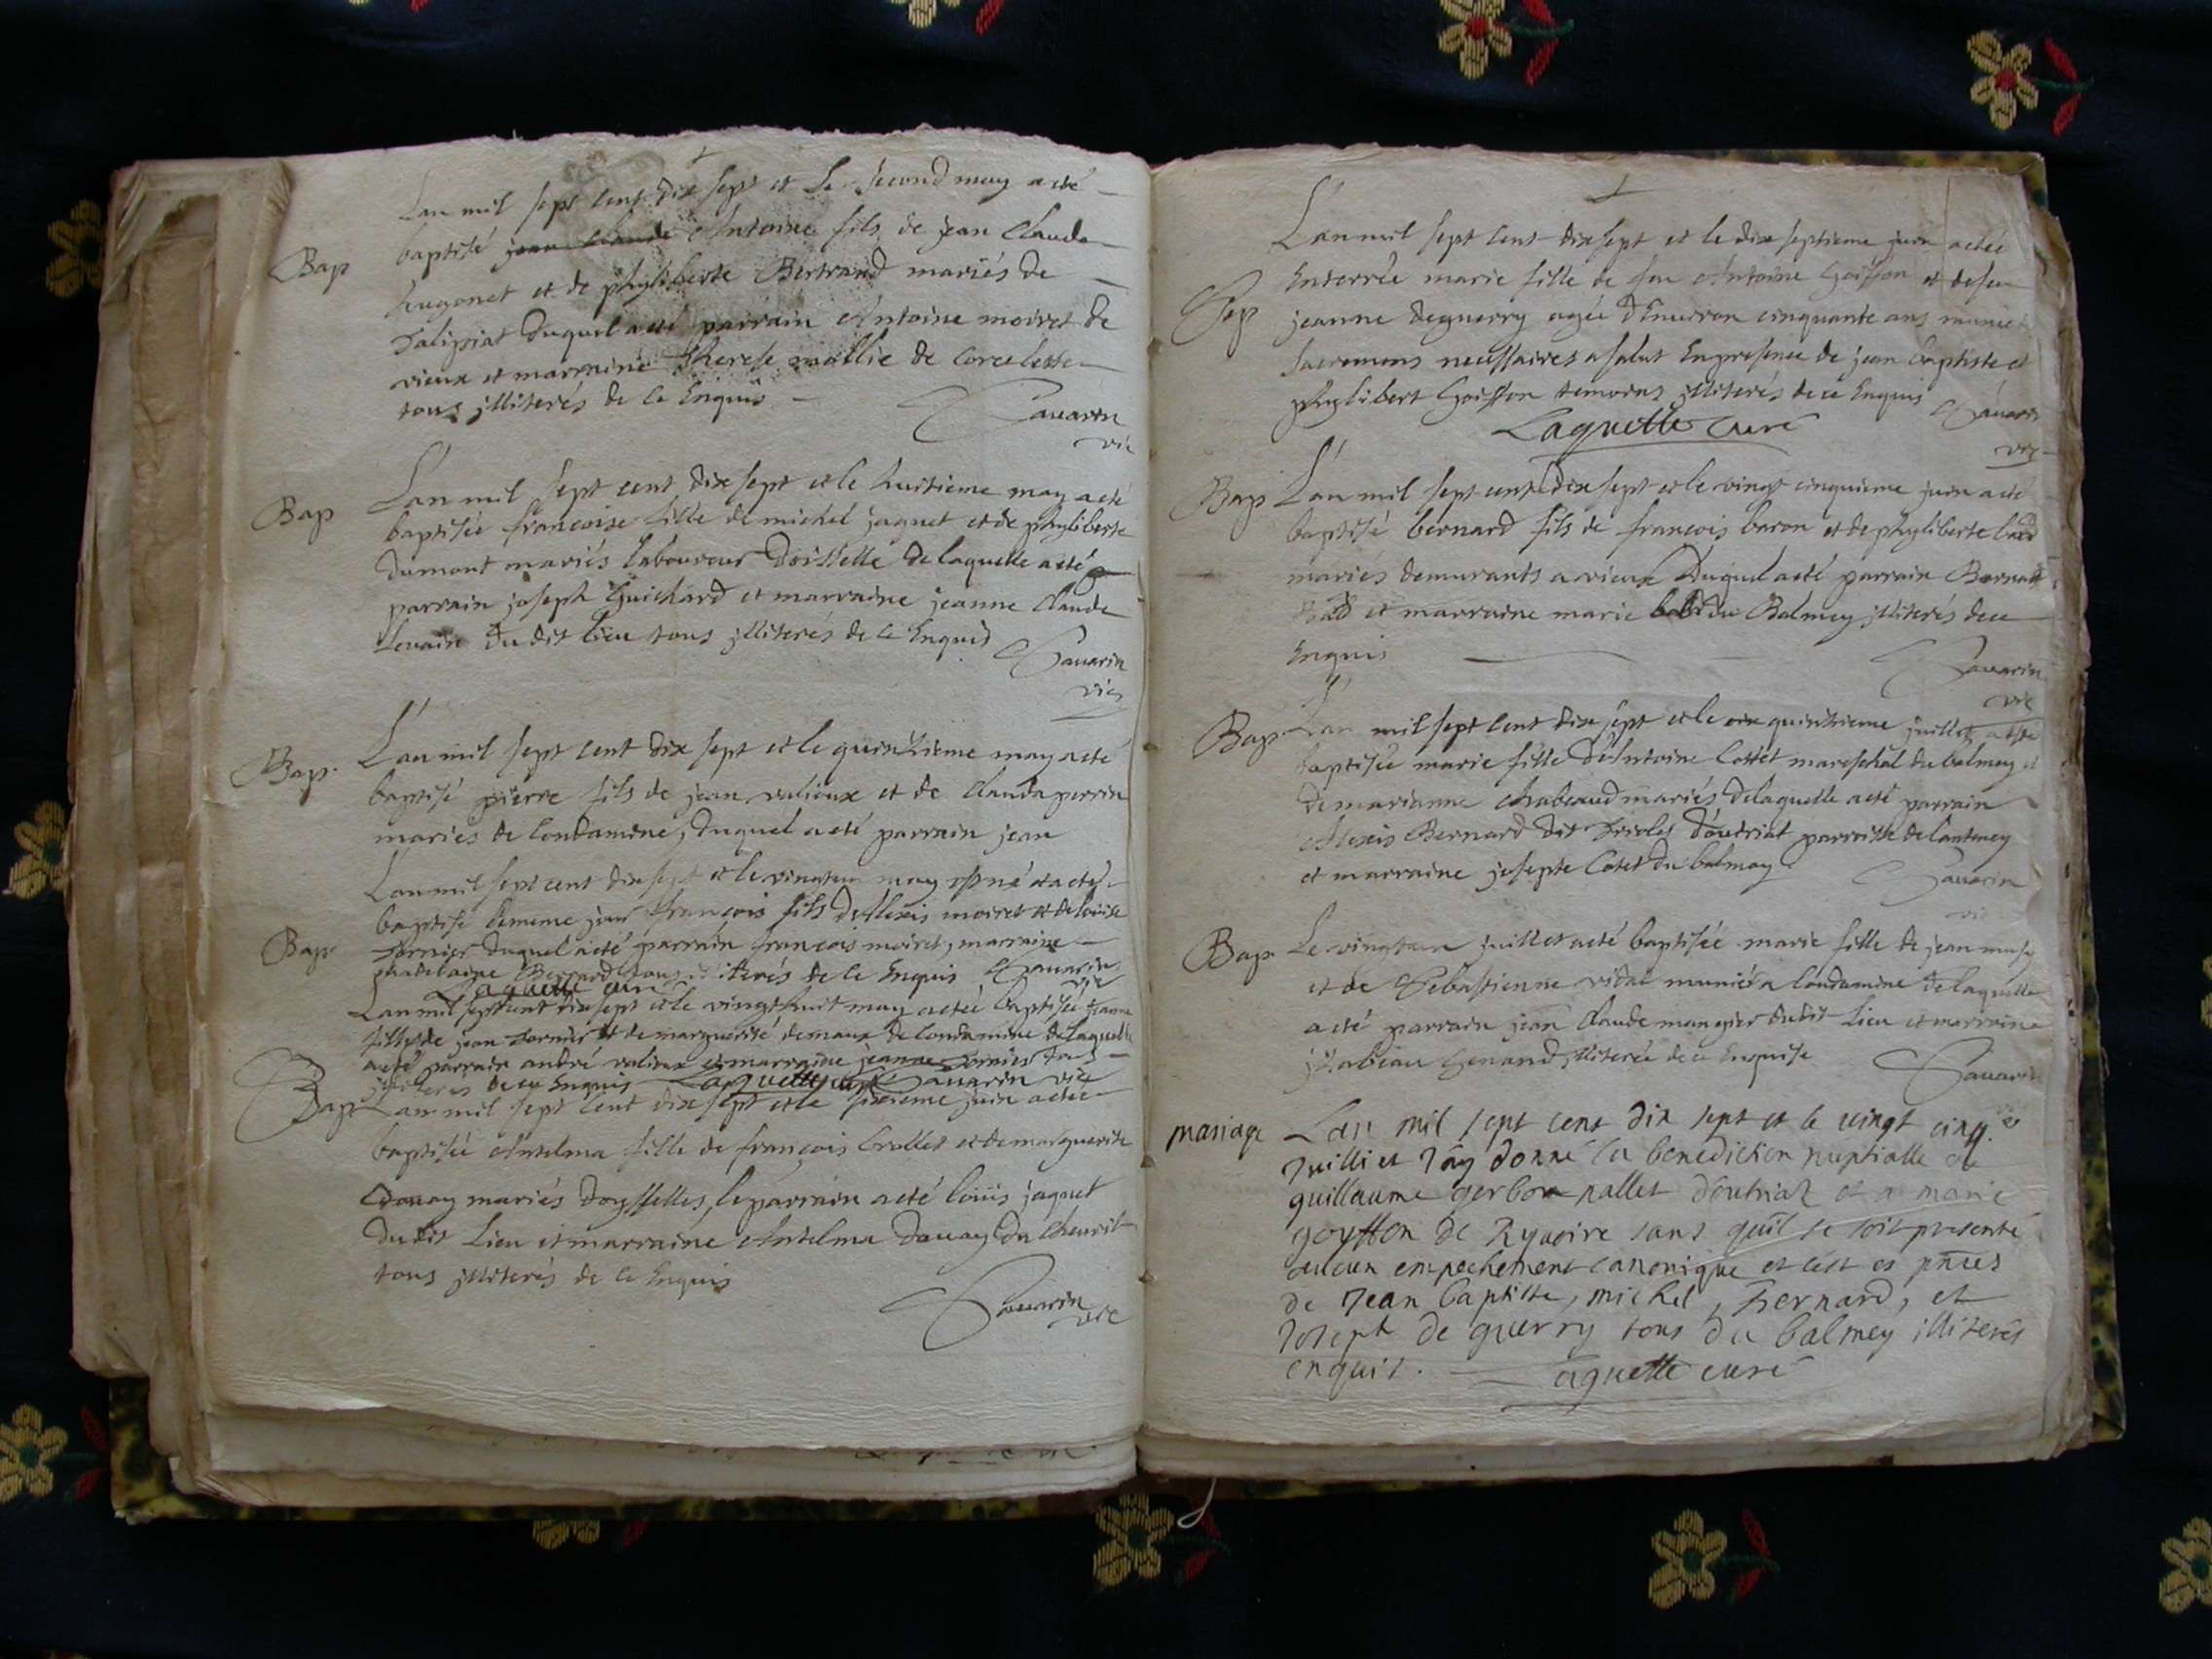 Lan mil sept cent dix sept et le second may a eté
Bap
baptisé jean claude Antoine fils de jean Claude
hugonet et de phyliberte Bertrand mariés de
Talipiat duquel a eté parrain Antoine moiret de
vieux et marraine therese mallie de Corcelette
tous illiterés de ce Enquis
Savarin
vic
Bap
Lan mil sept cent dix sept et le huitieme may a eté
baptisée francoise fille de michel jaquet et de phyliberte
dumont mariés laboureur doisselle de laquelle a eté
parrain joseph Guichard et marraine jeanne Claude
du dit lieu tous illiterés de ce Enquis
Savarin
vic
Bap.
L'an mil sept cent dix sept et le quinzieme may a eté
baptisé pierre fils de jean valioux et de Clauda perrin
mariés de Condamine, duquel a eté parrain jean
Lan mil sept cent dix sept et le vingtun may est né et a eté
Bap
baptisé le meme jour francois fils d'Alexis moiret et de louise
fornier duquel a eté parrain francois moiret, marraine
Bernard tous illiterés de ce Enquis Savarin
vic
Laguette curé
Lan mil sept cent dix sept et le vingt huit may a eté baptisée jeanne
fille de jean fornier et de marguerite demaux de Condamine de laquelle
a eté parrain andré valioux et marraine jeanne fornier tous
illiterés de ce Enquis Laguette curé Savarin vic
Bap
Lan mil sept cent dix sept et le sixieme juin a eté
baptisée Antelma fille de françois Crollet et de marguerite
Davay mariés doysselles, le parrain a eté louis jaquet
du dit Lieu et marraine Antelma Davay du Chevril
tous illiterés de ce Enquis
Savarin
vic
L'an mil sept cent dix sept et le dix septieme juin a eté
Sep
Enterrée marie fille de feu Antoine Goiffon et de feu
jeanne deguerry agée d'Environ cinquante ans munie
sacremens necessaires a salut En presence de jean baptiste et
phylibert Goiffon temoins illiterés de ce Enquis
Savarin
vic
Laguette curé
Bap
L'an mil sept cent dix sept et le vingt cinquieme juin a eté
baptisé bernard fils de francois baron et de phyliberte
mariés demurants a vieux duquel a eté parrain Bernard
et marraine marie du Balmey illiterés de ce
Enquis
Savarin
vic
Bap
Lan mil sept cent dix sept et le quinzieme juillet a eté
baptisée marie fille d'Antoine Cottet mareschal du balmey et
de marianne chabeaud mariés, de laquelle a eté parrain
Alexis Bernard dit d'outriat parroisse de lantenay
et marraine josepte Cotet du balmay
Savarin
vic
Bap
Le vingtun juillet a eté baptisée marie fille de jean musy
et de Sebastienne vidal mariés a Condamine de laquelle
a eté parrain jean Claude mangier dudit Lieu et marraine
jsabeau Genand, illiterée de ce Enquise
Savarin
vic
mariage
Lan mil sept cent dix sept et le vingt cinq.e
Juillet J'ay donné la benediction nuptialle a
guillaume gerbon nallet d'outriaz et a marie
goyffon de Ryvoire sans quil se soit presenté
aulcun empechement canonique et cest es pñces
de Jean baptiste, michel, Bernard, et
Joseph de guerry tous du balmey illiterés
enquis.
Laguette curé